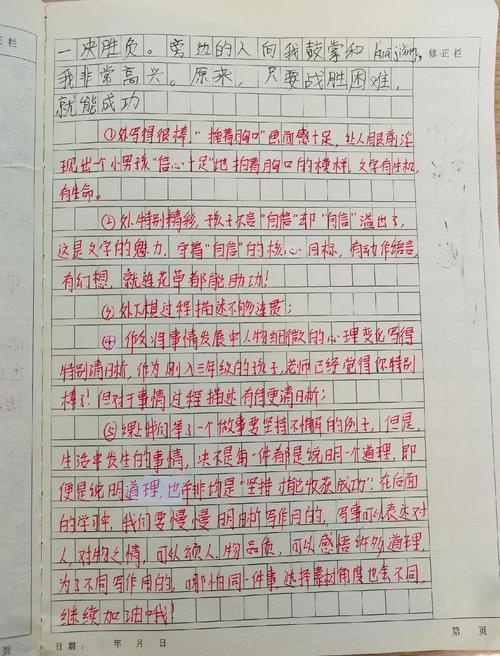 一决胜负。旁边的人向我鼓掌和huā jiǎng,
修正栏
我非常高兴。原来，只要战胜困难，
就能成功
①处写得很棒，“捶着胸口”画面感十足，让人眼前浮
现出一个小男孩“信心十足”地拍着胸口的模样，文字有生机，
有生命。
②处特别精彩，孩子不言“自信”却“自信”溢出了，
这是文字的魅力，守着“自信”的核心目标，有动作语言，
有幻想，就连花草都能助功！
③处下棋过程描述不够连贯；
④ 你将事情发展中人物细微的心理变化写得
特别清晰，作为刚入三年级的孩子，老师已经觉得你特别
棒了！但对于事情过程描述有待更清晰；
⑤ 我们举了一个做事要坚持不懈的例子，但是，
生活中发生的事情，决不是每一件都是说明一个道理，即
便是说明道理，也并非均是“坚持才能收获成功”；在后面
的学习中，我们要慢慢明晰写作用的，写事可以表达对
人，对物之情，可以颂人、物品质，可以感悟许多道理，
为了不同写作用的，哪怕同一件事选择素材角度也会不同，
继续加油哦！
日期： 年 月 日
第 页
页